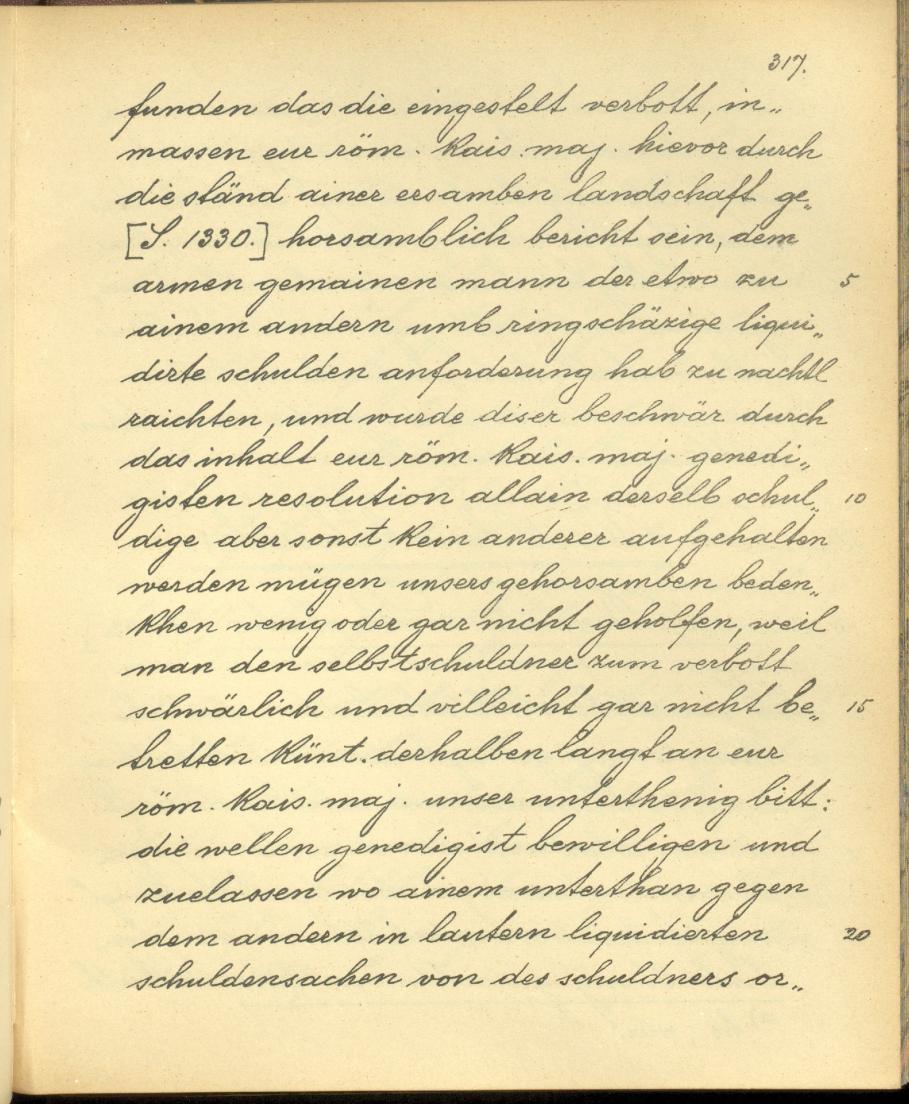 317.
funden das die eingestelt verbott, in„
massen eur röm. Kais. maj. hievor durch
die ständ ainer ersamben landschaft ge„
[S. 1330.] horsamblich bericht sein, dem
armen gemainen mann der etwo zu 5
ainem andern umb ringschäzige liqui„
dirte schulden anforderung hab zu nachtl
raichten, und wurde diser beschwär durch
das inhalt eur röm. Kais. maj. genedi„
gisten resolution allain derselb schul„ 10
dige aber sonst kein anderer aufgehalten
werden mügen unsers gehorsamben beden„
khen wenig oder gar nicht geholfen, weil
man den selbstschuldner zum verbott
schwärlich und villeicht gar nicht be„ 15
tretten künt. derhalben langt an eur
röm. Kais. maj. unser unterthenig bitt:
die wellen genedigist bewilligen und
zuelassen wo ainem unterthan gegen
dem andern in lautern liquidierten 20
schuldensachen von des schuldners or„